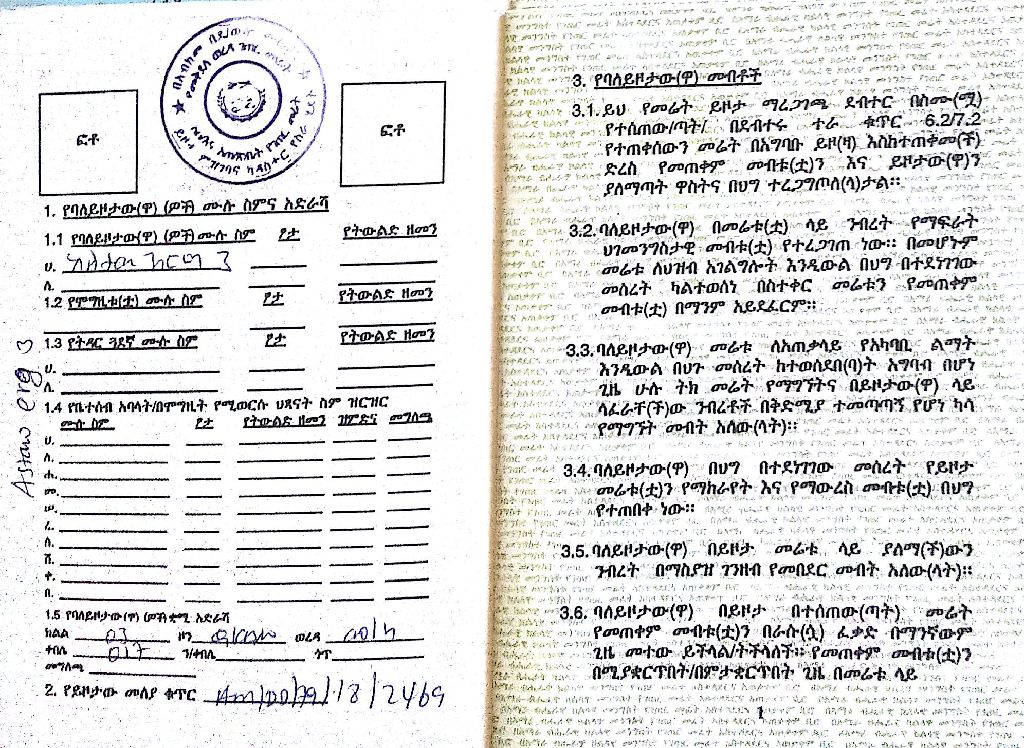 ፎቶ
ፎቶ
1. የባለይዞታው(ዋ) (ዎች) ሙሉ ስምና አድራሻ
1.1 የባለይዞታው(ዋ) (ዎች) ሙሉ ስም ፆታ የትውልድ ዘመን
ሀ.
ለ.
1.2 የሞግዚቱ(ቷ) ሙሉ ስም ፆታ የትውልድ ዘመን
1.3 የትዳር ጓደኛ ሙሉ ስም ፆታ የትውልድ ዘመን
ሀ.
ለ.
1.4 የቤተሰብ አባላት/በሞግዚት የሚወርሱ ህጻናት ስም ዝርዝር
ሙሉ ስም ፆታ የትውልድ ዘመን ዝምድና መግለጫ
ሀ.
ለ.
ሐ.
መ.
ሠ.
ረ.
ሰ.
ሸ.
ቀ.
በ.
1.5 የባለይዞታው(ዋ) (ዎች) ቋሚ አድራሻ
ክልል 03 ዞን ወረዳ
ቀበሌ 017 ን/ቀበሌ ጎጥ
መግለጫ
2. የይዞታው መለያ ቁጥር Am/00/79/18/2469
Astaw erg 3
3. የባለይዞታው(ዋ) መብቶች
3.1. ይህ የመሬት ይዞታ ማረጋገጫ ደብተር በስሙ(ሟ)
የተሰጠው/ጣት/ በደብተሩ ተራ ቁጥር 6.2/7.2
የተጠቀሰውን መሬት በአግባቡ ይዞ(ዛ) እስከተጠቀመ(ች)
ድረስ የመጠቀም መብቱ(ቷ)ን እና ይዞታው(ዋ)ን
ያለማጣት ዋስትና በህግ ተረጋግጦለ(ላ)ታል።
3.2. ባለይዞታው(ዋ) በመሬቱ(ቷ) ላይ ንብረት የማፍራት
ህገመንግስታዊ መብቱ(ቷ) የተረጋገጠ ነው። በመሆኑም
መሬቱ ለህዝብ አገልግሎት እንዲውል በህግ በተደነገገው
መሰረት ካልተወሰነ በስተቀር መሬቱን የመጠቀም
መብቱ(ቷ) በማንም አይደፈርም።
3.3. ባለይዞታው(ዋ) መሬቱ ለአጠቃላይ የአካባቢ ልማት
እንዲውል በህጉ መሰረት ከተወሰደበ(ባ)ት አግባብ በሆነ
ጊዜ ሁሉ ትክ መሬት የማግኘትና በይዞታው(ዋ) ላይ
ላፈራቸ(ች)ው ንብረቶች በቅድሚያ ተመጣጣኝ የሆነ ካሳ
የማግኘት መብት አለው(ላት)።
3.4. ባለይዞታው(ዋ) በህግ በተደነገገው መሰረት የይዞታ
መሬቱ(ቷ)ን የማከራየት እና የማውረስ መብቱ(ቷ) በህግ
የተጠበቀ ነው።
3.5. ባለይዞታው(ዋ) በይዞታ መሬቱ ላይ ያለማ(ች)ውን
ንብረት በማስያዝ ገንዘብ የመበደር መብት አለው(ላት)።
3.6. ባለይዞታው(ዋ) በይዞታ በተሰጠው(ጣት) መሬት
የመጠቀም መብቱ(ቷ)ን በራሱ(ሷ) ፈቃድ በማንኛውም
ጊዜ መተው ይችላል/ትችላለች። የመጠቀም መብቱ(ቷ)ን
በሚያቋርጥበት/በምታቋርጥበት ጊዜ በመሬቱ ላይ
1